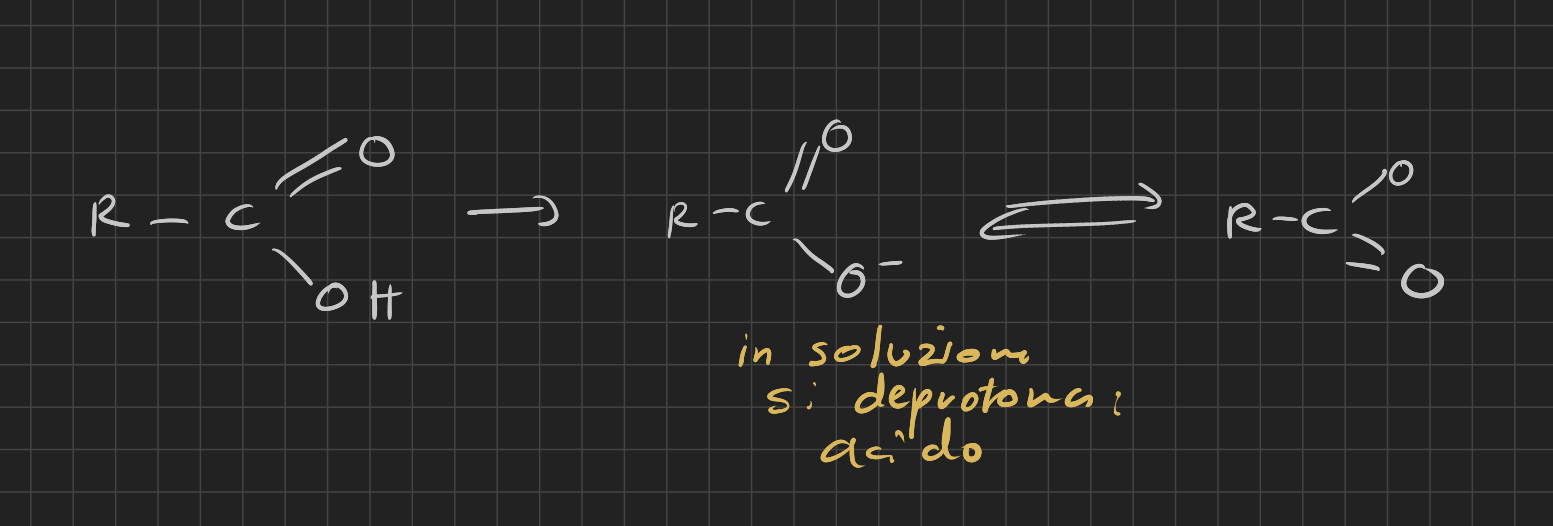 O O O
R - C R - C R - C
OH O- O
in soluzione
si deprotona:
acido